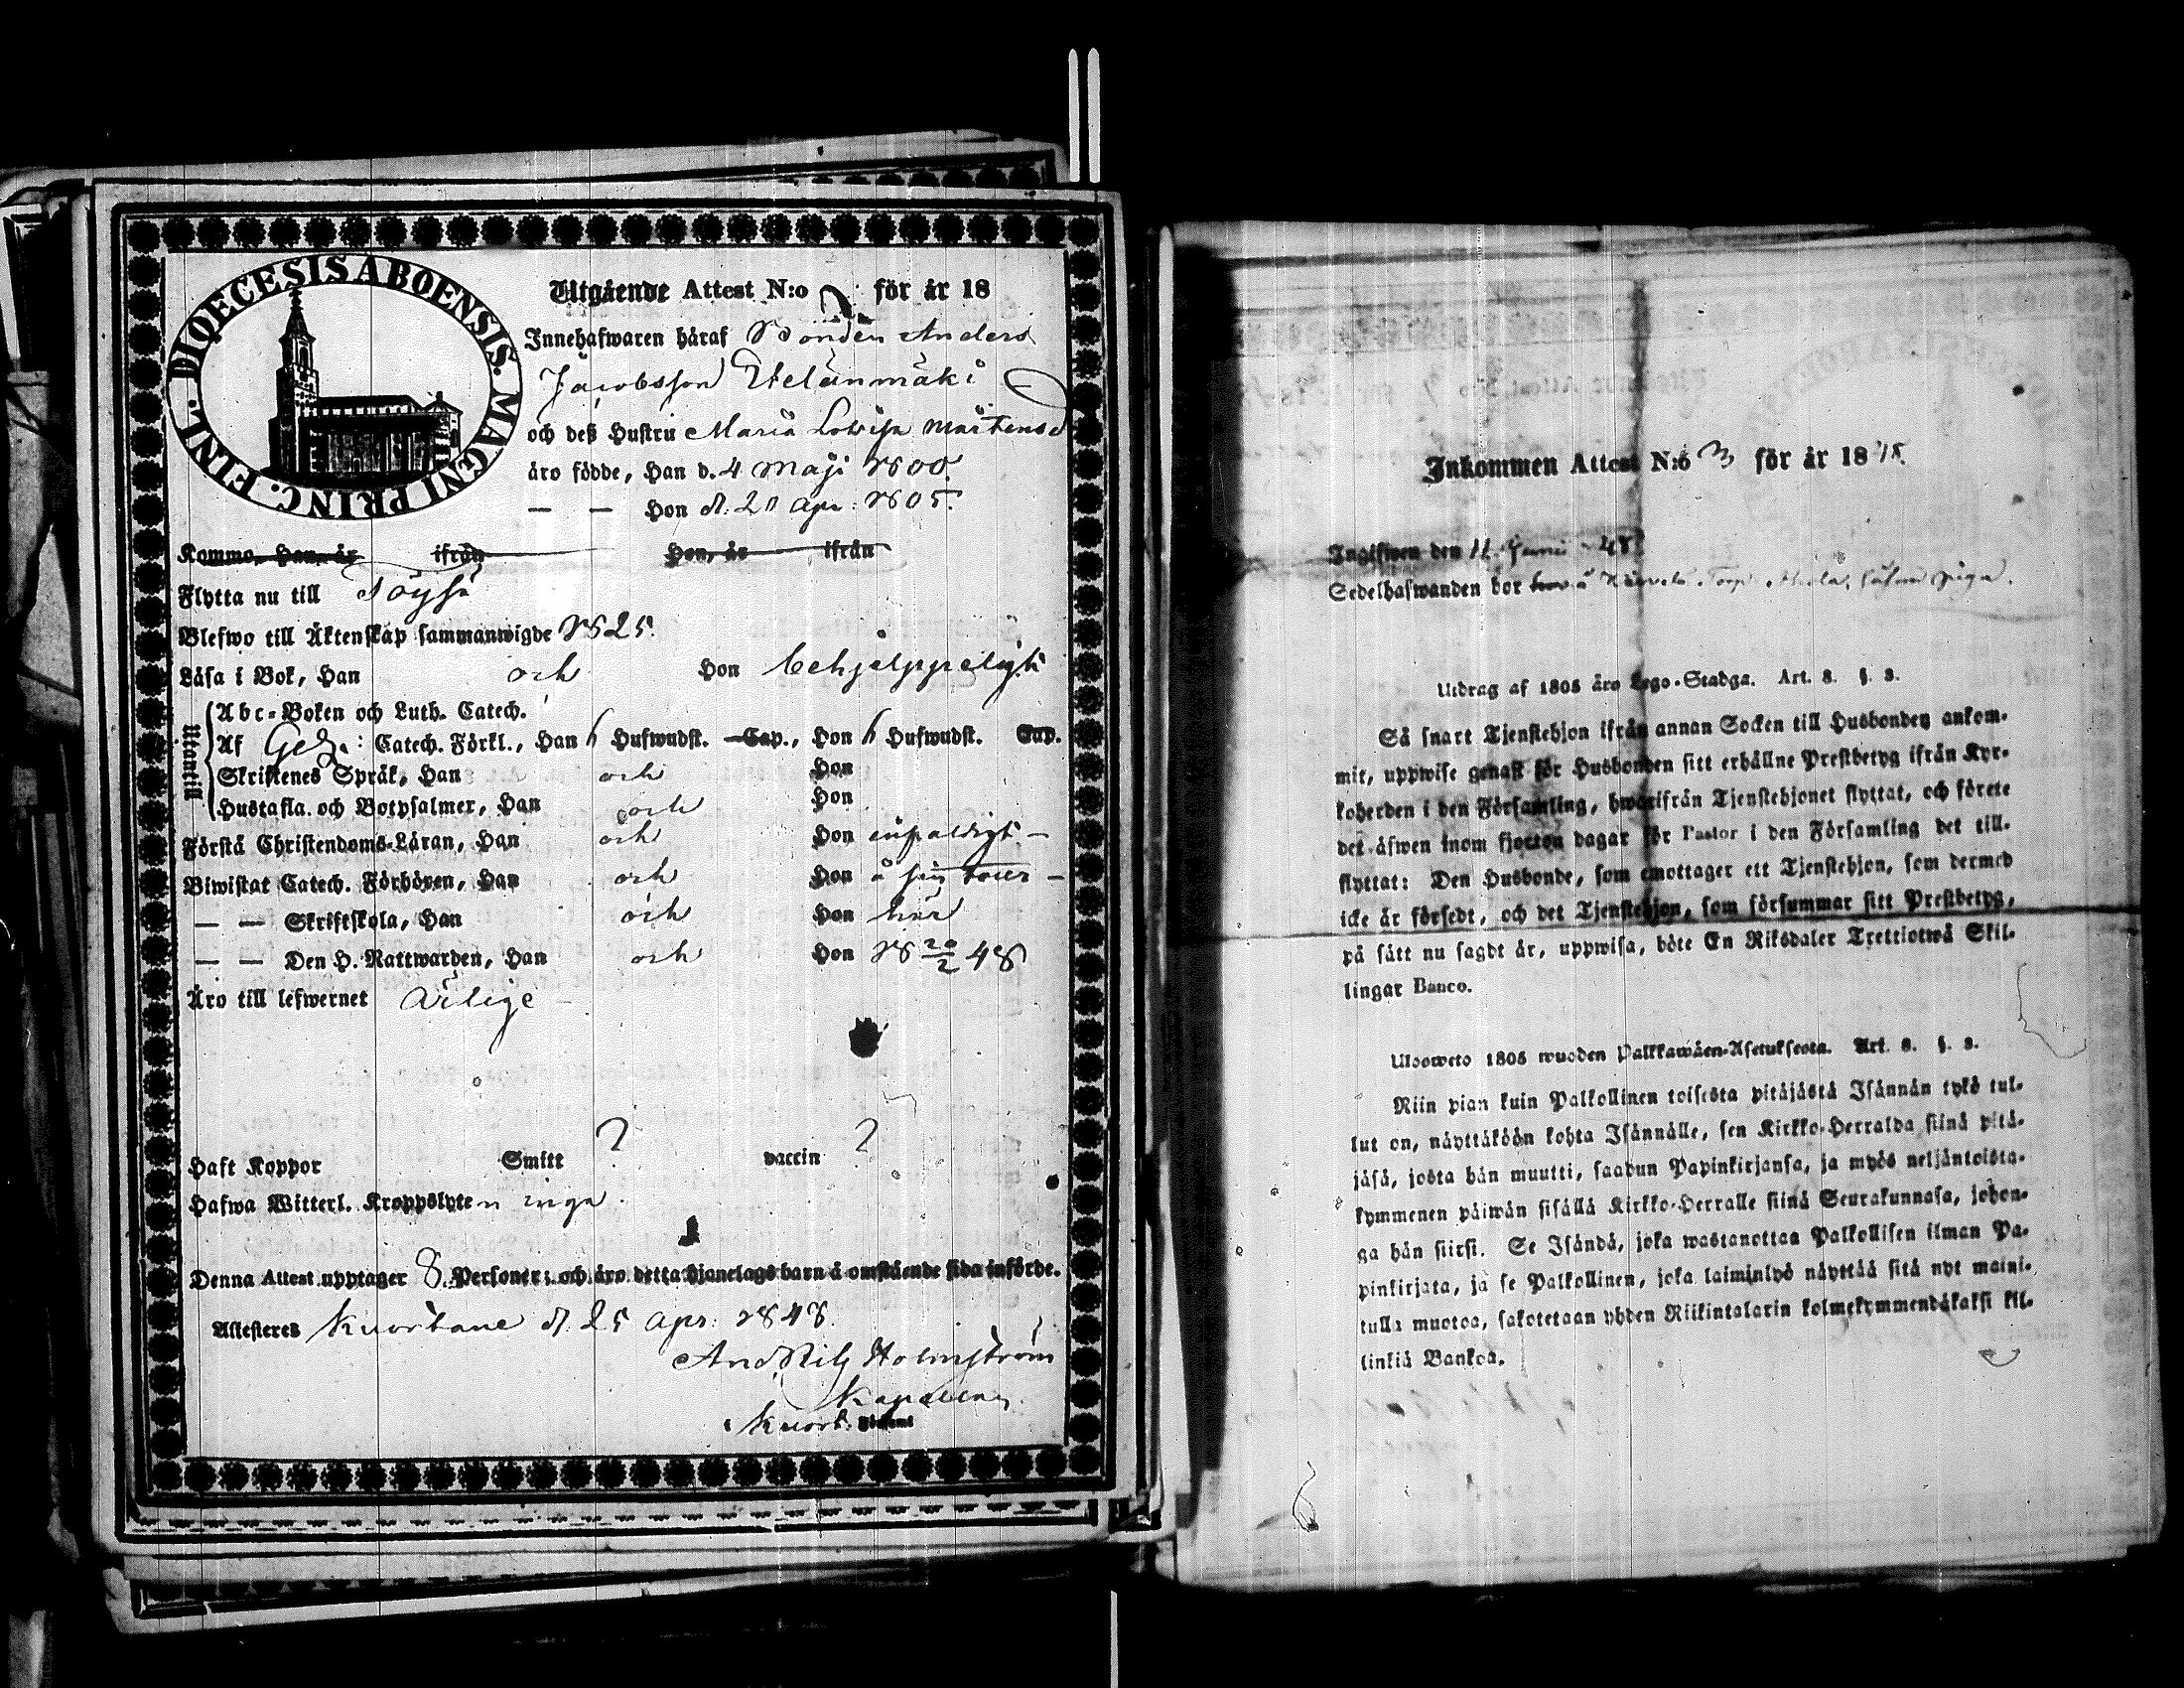 DIOECESIS ABOENSIS. MAGNI PRINC. FINL.
Utgående Attest N:o för år 18
Innehafwaren håraf Bonden Anders
Jacobsson Etelänmäki
och deß Hustru Maria Lovisa Mårtensd
äro födde, Han d. 4 Maji 1800.
— — Hon d. 20 Apr: 1805.
Komma, Han, år ifrån Hon, år ifrån
Flytta nu till Töysä
Blefwo till Äktenskap sammanwigde 1825.
Läsa i Bok, Han och Hon behjelppeligt
Utantill
Abc-Boken och Luth. Catech.
Af Gez.: Catech. Förkl., Han 6 Hufwudst. Cap., Hon 6 Hufwudst. Cap.
Skriftenes Språk, Han och Hon
Hustafla och Botpsalmer, Han och Hon
Förstå Christendoms-Läran, Han och Hon enfaldigt —
Biwistat Catech. Förhören, Han och Hon å sin —
— — Skriftskola, Han och Hon här
— — Den H. Nattwarden, Han och Hon 18 20/2 48
Äro till lefwernet ärlige —
Haft Koppor Smitt ? vaccin ?
Hafwa Witterl. Kroppslyten inga.
Denna Attest upptager 8. Personer; och äro detta hjonelags barn å omstående sida införde.
Attesteres Kuortane d. 25 Apr. 1848.
And Nils Holmström
Kapellan
i Kuort.
Inkommen Attest N:o 3 för år 1848.
Ingifwen den 11 Junii - 48
Sedelhafwanden bor å Torp
Utdrag af 1805 års Lego-Stadga. Art. 8. §. 3.
Så snart Tjenstehjon ifrån annan Socken till Husbonden ankom-
mit, uppwise genast för Husbonden sitt erhållne Prestbetyg ifrån Kyr-
koherden i den Församling, hwarifrån Tjenstehjonet flyttat, och förete
det åfwen inom fjorton dagar för Pastor i den Församling det till-
flyttat: Den Husbonde, som emottager ett Tjenstehjon, som dermed
icke är försedt, och det Tjenstehjon, som försummar sitt Prestbetyg,
på sätt nu sagdt är, uppwisa, böte En Riksdaler Trettiotwå Skil-
lingar Banco.
Ulosweto 1805 wuoden Palkkawäen-Asetuksesta. Art. 8. §. 3.
Niin pian kuin Palkollinen toisesta pitäjästä Isännän tykö tul-
lut on, näyttäköön kohta Isännälle, sen Kirkko-Herralda siinä pitä-
jäsä, josta hän muutti, saadun Papinkirjansa, ja myös neljäntoista-
kymmenen päiwän sisällä Kirkko-Herralle siinä Seurakunnasa, johon-
ga hän siirsi. Se Isändä, joka wastanottaa Palkollisen ilman Pa-
pinkirjata, ja se Palkollinen, joka laiminlyö näyttää sitä nyt maini-
tulla muotoa, sakotetaan yhden Riikintalarin kolmekymmendäkaksi kil-
linkiä Bankoa.